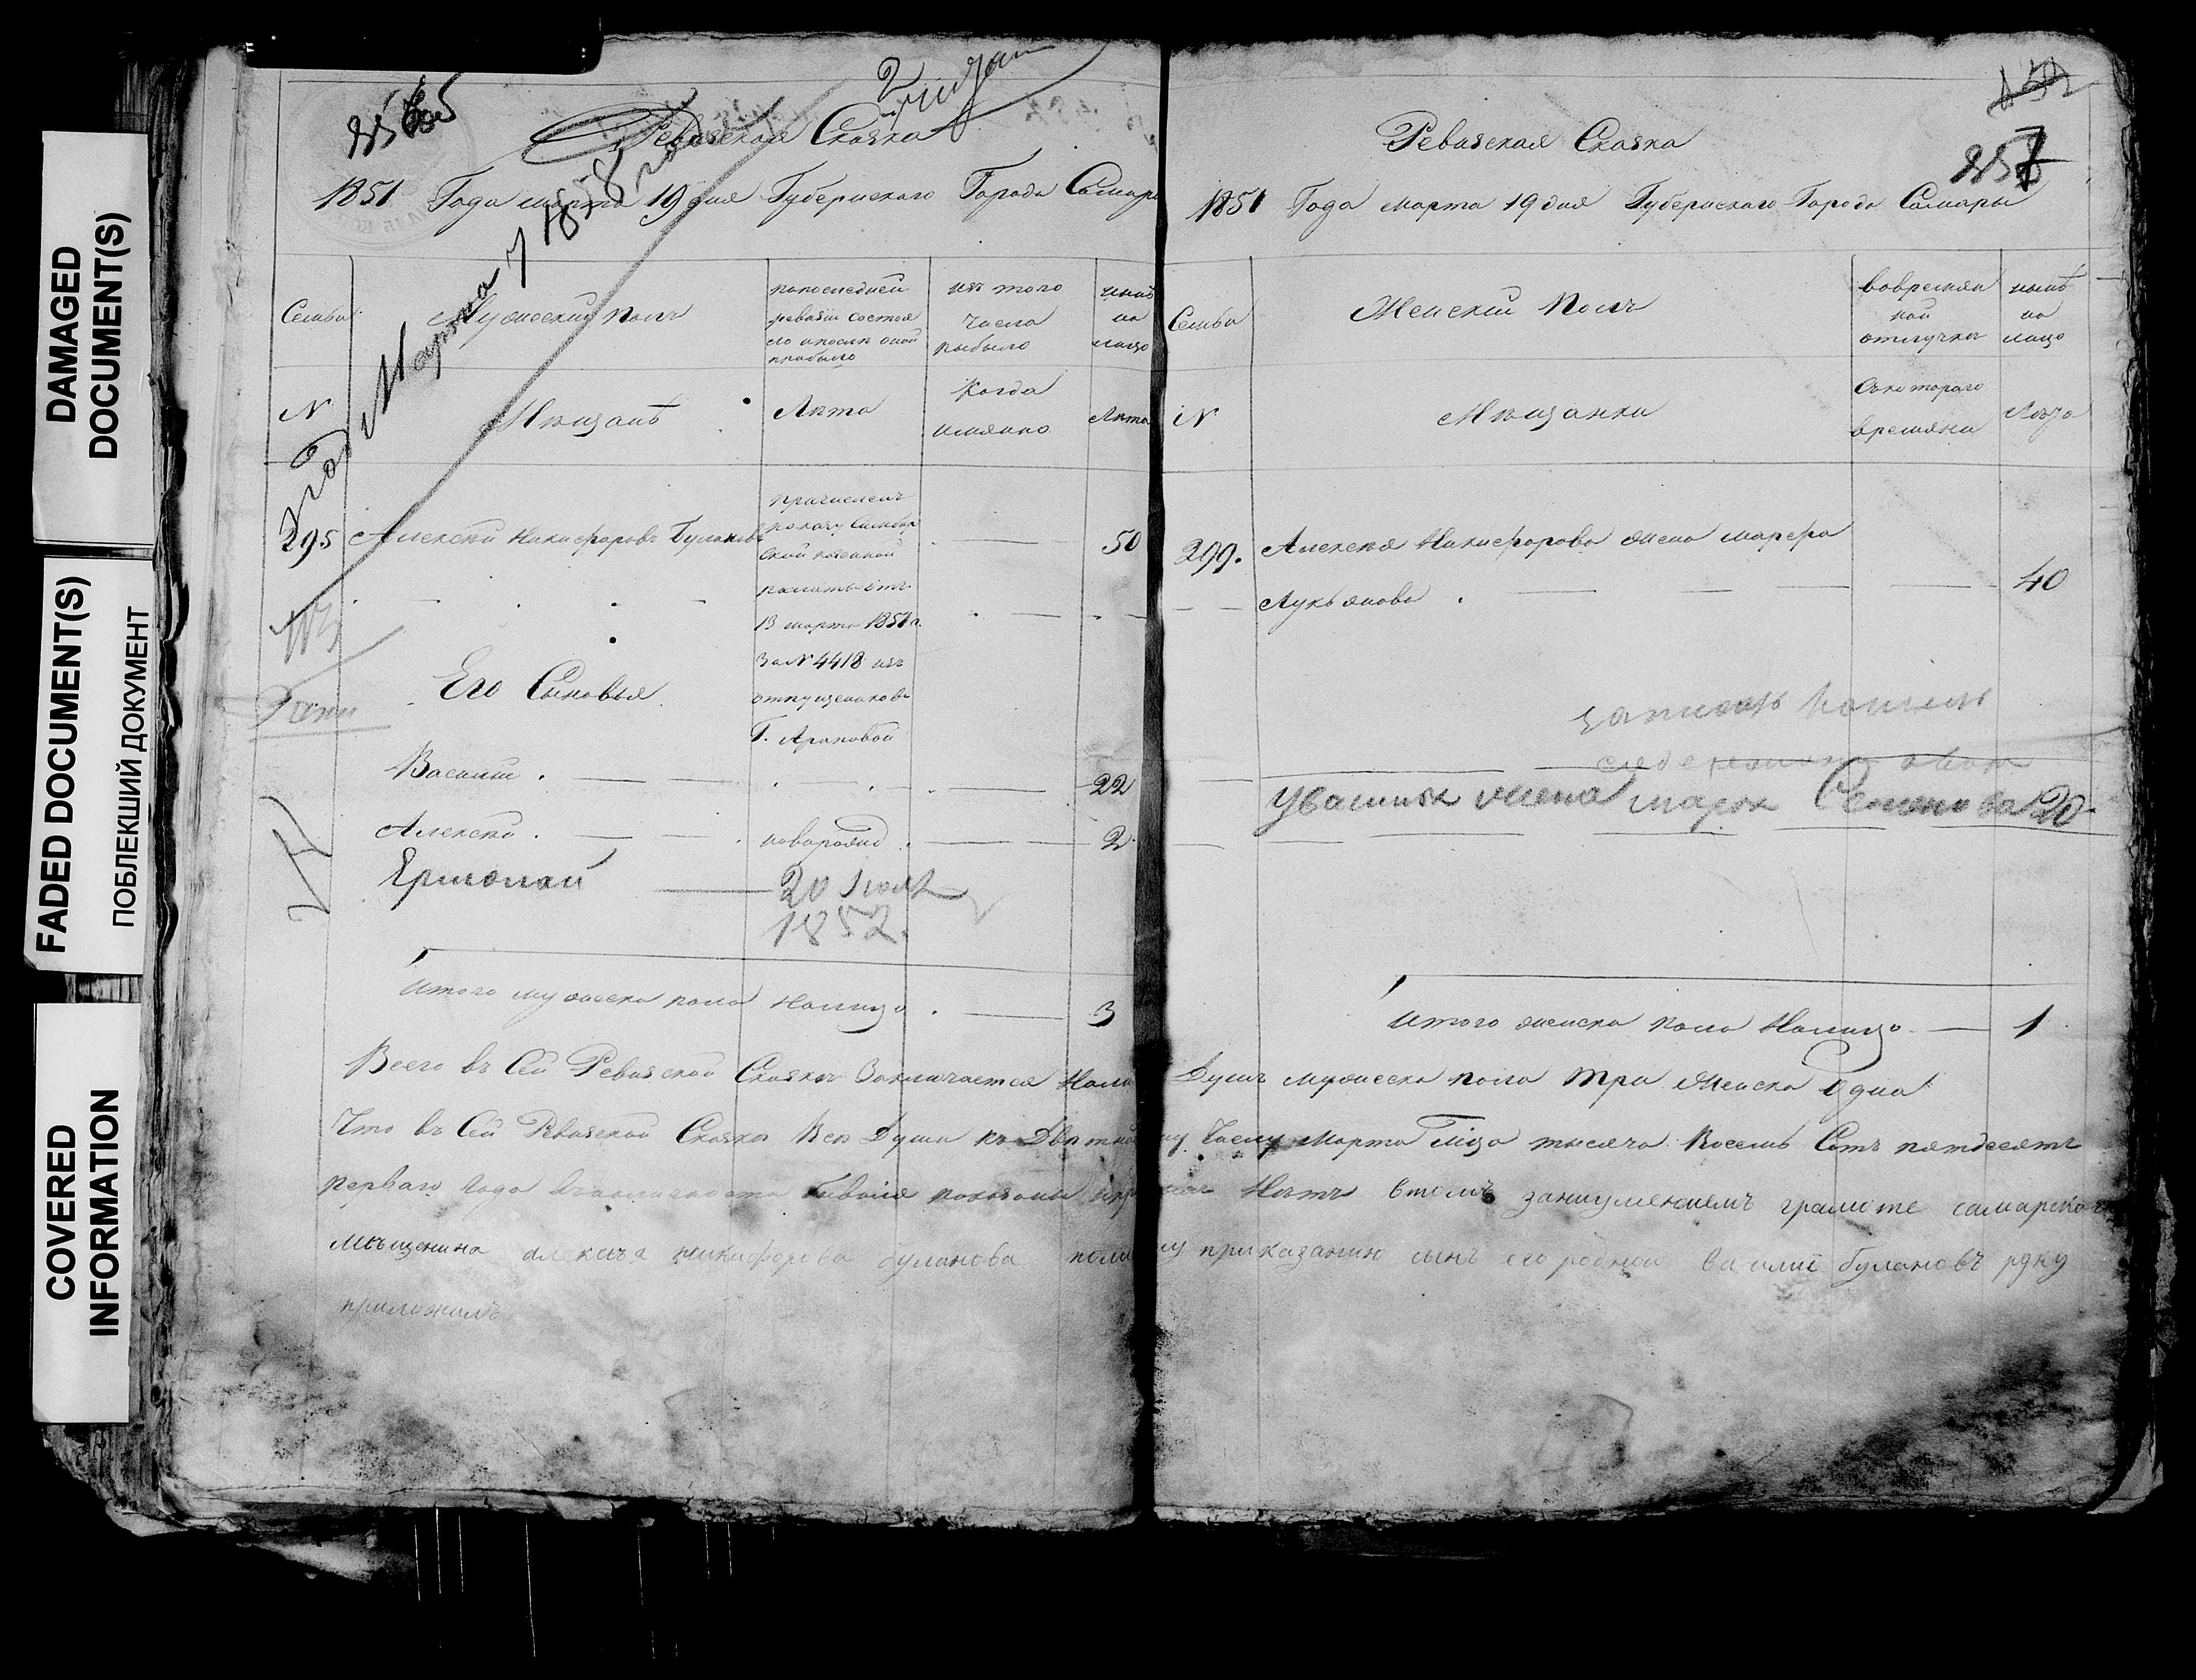 DAMAGED
DOCUMENT(S)
FADED DOCUMENT(S)
ПОБЛЕКШИЙ ДОКУМЕНТ
COVERED
INFORMATION
Ревизская Сказка
1851 Года марта 19 дня Губернскаго Города Самары
Марта 7 1858 года
Семьи
Мужескии полъ
по последней
ревизіи состоя
ло и после оной
прибыло
изъ того
числа
выбыло
ныне
на
лицо
N
Мещанѣ
Лета
Когда
имянно
Лета
295 Алексѣй Никифоровъ Булановъ
50
причисленъ
по указу Симбир
ской казенной
палаты отъ
13 марта 1851 г.
За N 4418 изъ
отпущенниковъ
Г. Араповой
Его Сыновья
Василий 22
Алексѣй новорожд 2
Ермолай 20 Июля
1852.
Итого мужеска пола Налицо 3
Ревизская Сказка
1851 Года марта 19 дня Губернскаго Города Самары
Семьи
Женский Полъ
вовремян
ной
отлучки
нынѣ
на
лицо
N
Мещанки
Съкотораго
времяни
Лета
299. Алексея Никифорова жена марфа
Лукьянова 40
УВасилья жена марья Семенова 20
Итого женска пола Налицо 1
Всего въ Сей Ревизской Сказке Заключается Нали Душъ мужеска пола три Женска Одна
Что въ Сей Ревизской Сказке Все Души къ Двятнад му Числу Марта Мца тысяча Восемь Сотъ пятдесятъ
перваго года показаны Нетъ втомъ занеумениемъ грамоте самарскаго
мѣщенина алексѣя никифорова буланова приказанию сынъ его родной василиі булановъ руку
приложилъ